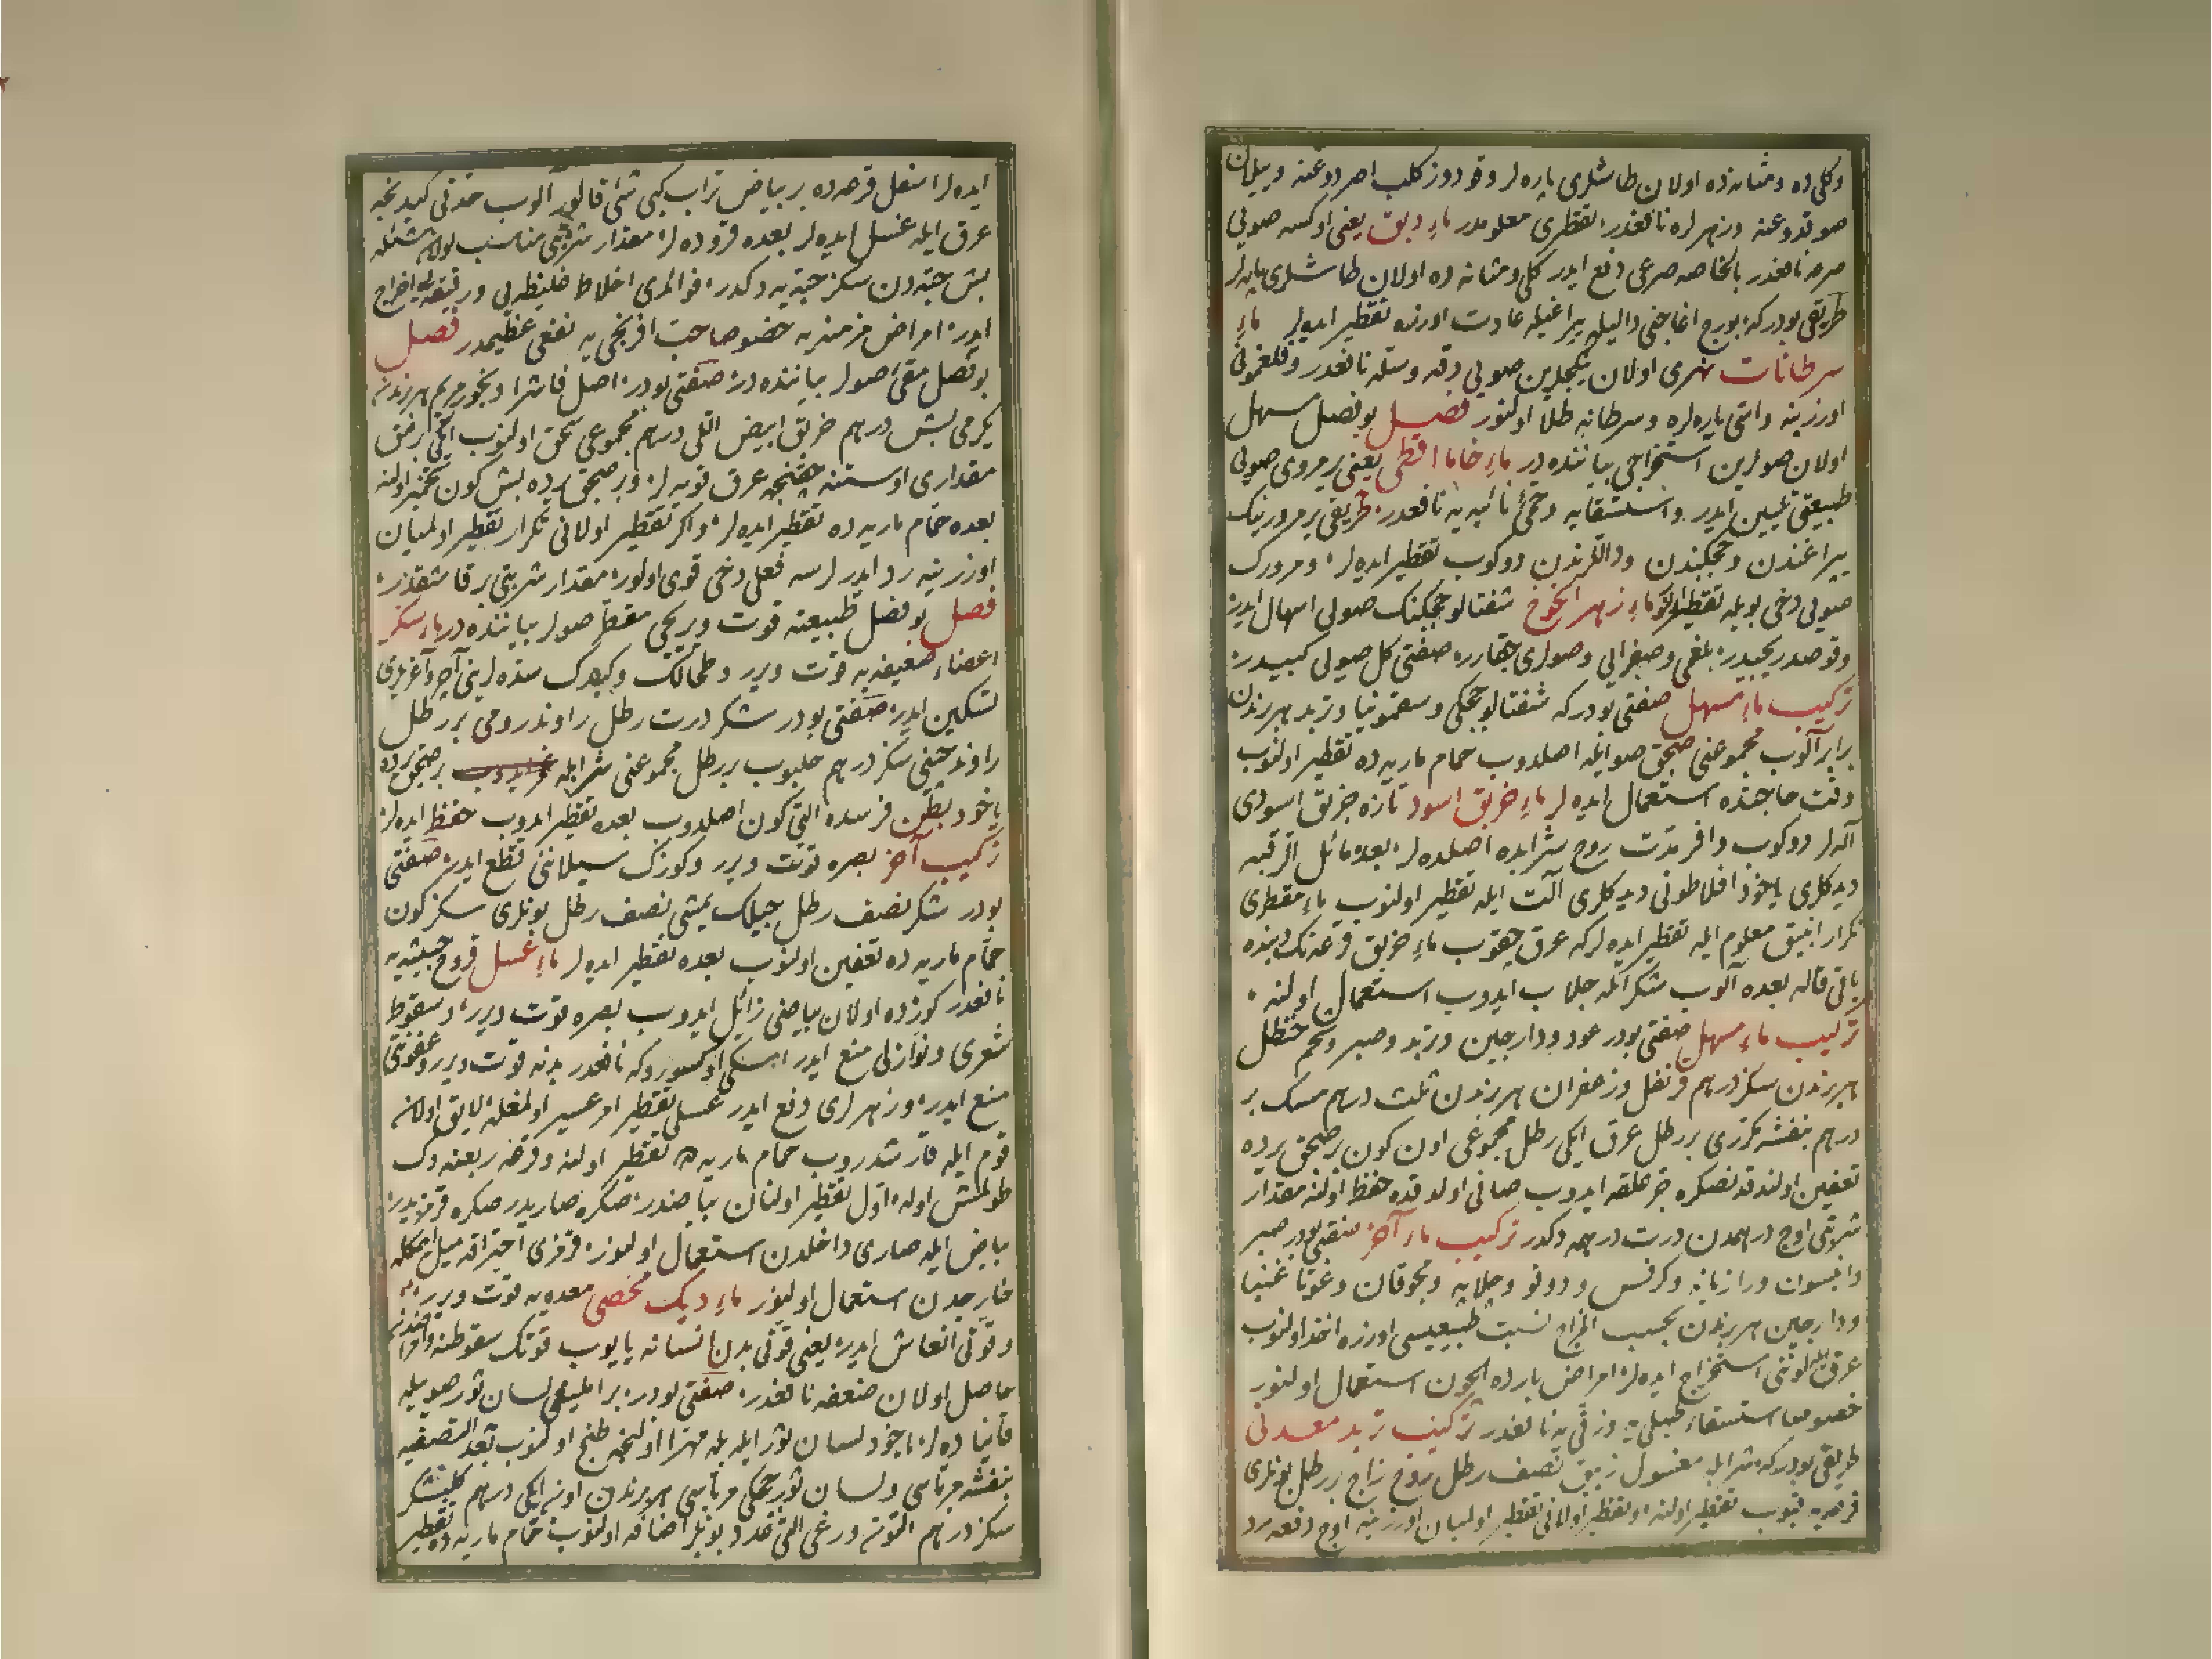 وكلى ده ومثانه ده اولان طاشلرى پاره لر وقودوز كلب اصردوغنه وييلان
صوقدوغنه وزهرلره نافعدر تقطيرى معلومدر ماء دبق يعنى اوكسه صويى
صرعه نافعدر بالخاصه صرعى دفع ايدر كلى ومثانه ده اولان طاشلرى پاره لر
طريقى بودركه بورج اغاجنى داليله يپراغيله عادت اوزره تقطير ايدلر ماء
سرطانات نهرى اولان ينكجلرين صويى دقه وسله نافعدر وفلغمونى
اوزرينه واتى ياره لره وسرطانه طلا اولنور فصل بو فصل مسهل
اولان صولرين استخراجى بياننده در ماء خاما اقطى يعنى يرمرورى صويى
طبيعتى تليين ايدر واستسقايه وحمى نائبه يه نافعدر طريقى يرمرورينك
يپراغندن وچچكندن ودالّرندن دوكوب تقطير ايده لر ومرورك
صويى دخى بويله تقطير اولنور ماء زهر الخوخ شفتالو چچكنك صويى اسهال ايدر
وقوصدريجيدر بلغمى وصفرايى وصولرى چقارر صفتى كل صويى كبيدر
تركيب ماء مسهل صفتى بودركه شفتالو چچكى وسقمونيا وتربد هر برندن
برابر آلوب مجموعنى صيجق صو ايله اصلدوب حمام ماريه ده تقطير اولنوب
وقت حاجتده استعمال ايده لر ماء خربق اسود تازه خربق اسودى
آله لر دوكوب وافر مدت روح شرابده اصلده لر بعده مائل الرقبه
ديدكلرى ياخود افلاطونى ديدكلرى آلت ايله تقطير اولنوب ماء مقطرى
تكرار انبيق معلوم ايله تقطير ايده لركه عرق چقوب ماء خربق قرعه نك دبنده
باقى قاله بعده آلوب شكر ايله جلاب ايدوب استعمال اولنه
تركيب ماء مسهل صفتى بودر عود ودارچين وتربد وصبر وشحم حنظل
هر برندن سكز درهم قرنفل وزعفران هر برندن ثلث درهم مسك بر
درهم بنفشه مكررى بر رطل عرق ايكى رطل مجموعى اون كون بر صيجق يرده
تعفين اولندقدنصكره جر علقه ايدوب صافى اولدقده حفظ اولنه مقدار
شربتى اوچ درهمدن درت درهمه دكدر تركيب ماء آخر صفتى بودر صبر
وانيسون ورازيانه وكرفس ودوقو وجلاپه ومحوقان وغوتا غنبا
ودارچين هر برندن بحسب المزاج نسبت طبيعيسى اوزره اخذ اولنوب
عرق ايله لونى استخراج ايده لر امراض بارده ايچون استعمال اولنور
خصوصا استسقاء طبلى يه وزقّى يه نافعدر تركيب تربد معدنى
طريقى بودركه شرابله مغسول زيبق نصف رطل روح زاج بر رطل بونلرى
قرعه يه قيوب تقطير اولنه اول تقطير اولانى تقطير اولميان اوزرينه اوچ دفعه رد
ايده لر اسفل قرعه ده بر بياض تراب كبى شئ قالور آلوب حدتى كيدنجه
عرق ايله غسل ايده لر بعده قروده لر مقدار شربتى مناسب اولان شئله
بش حبه دن سكز حبه يه دكدر افواالمرى اخلاط غليظه يى ورقيقه يى اخراج
ايدر امراض مزمنه يه خصوصا حب افرنجى يه نفعى عظيمدر فصل
بو فصل مقئ صولر بياننده در صفتى بودر اصل فاشرا وبخور مريم هر برندن
يكرمى بش درهم خربق ابيض اللى درهم مجموعى سحق اولنوب ايكى برمق
مقدارى اوستنه چقنجه عرق قويه لر وبر صيجق يرده بش كون تخمير اولنه
بعده حمام ماريه ده تقطير ايده لر واكر تقطير اولانى تكرار تقطير اولميان
اوزرينه رد ايدرلرسه فعلى دخى قوى اولور مقدار شربتى بر قاشقدر
فصل بو فصل طبيعته قوت ويريجى مقطر صولر بياننده در ماء سكر
اعضاء ضعيفه يه قوت ويرر وطحالك وكبدك سدّه لرينى آچر وآغريلرى
تسكين ايدر صفتى بودر شكر درت رطل راوند رومى بر رطل
راوند چينى سكز درهم حليوب بر رطل مجموعنى شرابله بر صيجق يرده
ياخود بطن فرسده التى كون اصلدوب بعده تقطير ايدوب حفظ ايده لر
تركيب آخر بصره قوت ويرر وكوزك سيلاننى قطع ايدر صفتى
بودر شكر نصف رطل چيلك يمشى نصف رطل بونلرى سكز كون
حمام ماريه ده تعفين اولنوب بعده تقطير ايده لر ماء عسل قروح خبيثه يه
نافعدر كوزده اولان بياضى زائل ايدوب بصره قوت ويرر وسقوط
شعرى ونوازلى منع ايدر اسكى اوكسوروكه نافعدر بدنه قوت ويرر وعفونتى
منع ايدر وزهرلرى دفع ايدر عسلى تقطير امر عسير اولمغله لايق اولان
قوم ايله قارشدروب حمام ماريه ده تقطير اولنه وقرعه ربعنه دك
طولمش اوله اول تقطير اولنان بياضدر صكره صاريدر صكره قرمزيدر
بياض ايله صارى داخلدن استعمال اولنور قرمزى احتراقه ميل ايتمكله
خارجدن استعمال اولنور ماء ديك مخصى معده يه قوت ويرر
وقوتى انعاش ايدر يعنى قوتى بدن انسانه يايوب قوتك سقوطنه وامراضدن
حاصل اولان ضعفه نافعدر صفتى بودر بر ايليغى لسان ثور صويله
قاينادە لر ياخود لسان ثور ايله بله مهرّا اولنجه طبخ اولنوب بعد التصفيه
بنفشه مرباسى ولسان ثور چچكى مرباسى هر برندن اونر ايكى درهم كلبشكر
سكز درهم التون ورغى التى عدد بونلر اضافه اولنوب حمام ماريه ده تقطير